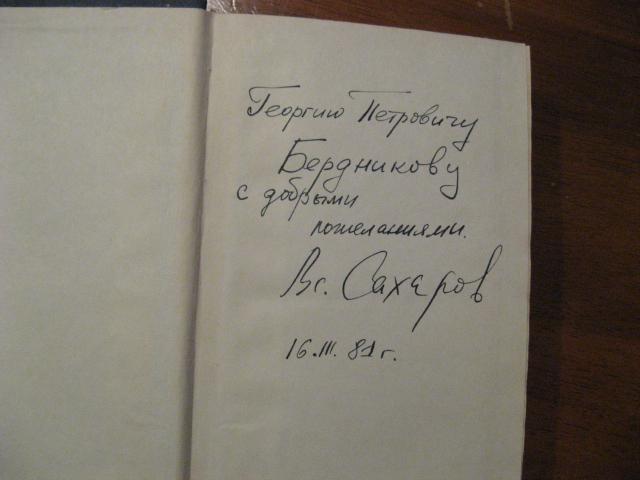 Георгию Петровичу
Бердникову
с добрыми
пожеланиями.
Вс. Сахаров
16.III. 81 г.